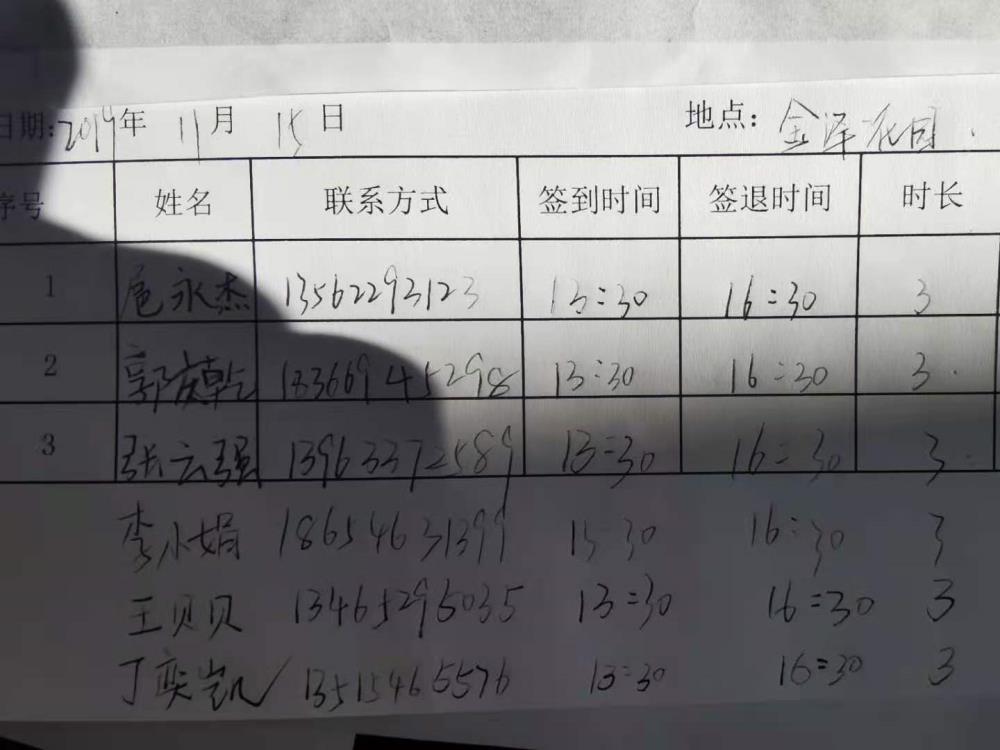 日期:2019年 11月 15日 地点:金泽花园.
序号 姓名 联系方式 签到时间 签退时间 时长
1 扈永杰 13562293123 13:30 16:30 3
2 郭 18366945298 13:30 16:30 3.
3 张云强 13963372589 13:30 16:30 3.
李小娟 18654631399 13 30 16:30 3
王贝贝 13465296035 13:30 16:30 3
丁奕凯 13515465576 13:30 16:30 3